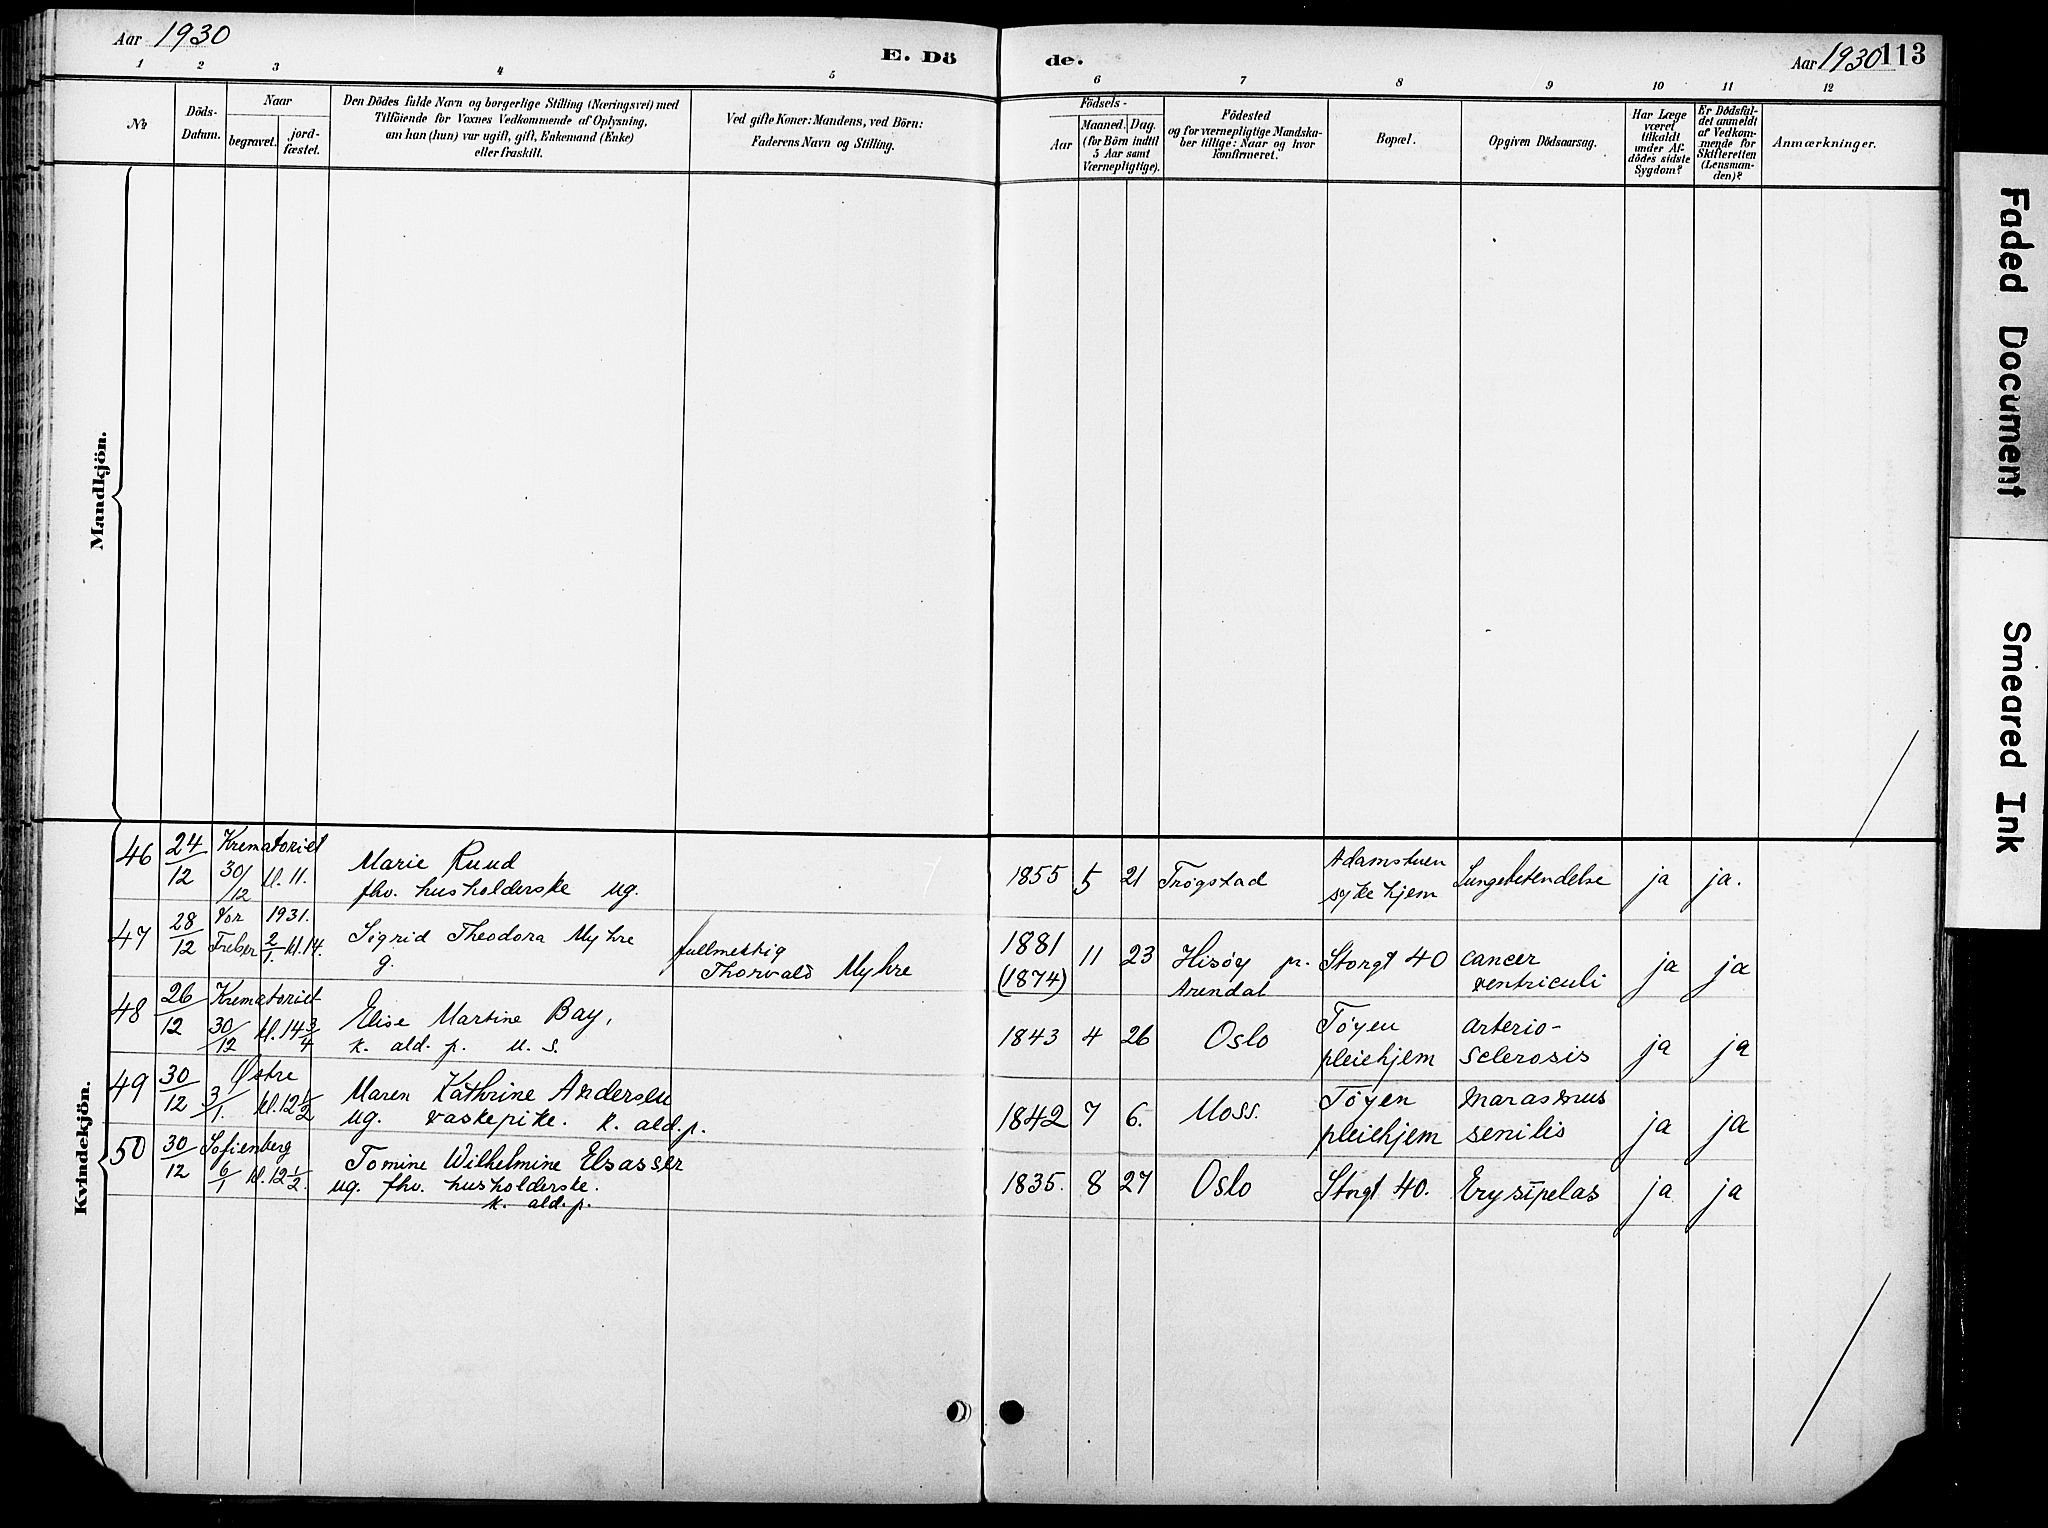 Aar 1930
E. Dö
de.
Aar 1930 113
1 2 3 4 5 6 7 8 9 10 11 12
No
Döds-
Datum.
Naar
begravet.
jord-
fæstet.
Den Dödes fulde Navn og borgerlige Stilling (Næringsvei) med
Tilföiende for Voxnes Vedkommende af Oplysning,
om han (hun) var ugift, gift, Enkemand (Enke)
eller fraskilt.
Ved gifte Koner: Mandens, ved Börn:
Faderens Navn og Stilling.
Födsels-
Aar
Maaned. Dag.
(for Börn indtil
5 Aar samt
Værnepligtige).
Födested
og for værnepligtige Mandska-
ber tillige: Naar og hvor
konfirmeret.
Bopæl.
Opgiven Dödsaarsag.
Har Læge
været
tilkaldt
under Af-
dödes sidste
Sygdom?
Er Dödsfal-
det anmeldt
af Vedkom-
mende for
Skifteretten
(Lensman-
den)?
Anmærkninger.
Mandkjön.
Kvindekjön.
46 24/12 Krematoriet
30/12 kl. 11.
Marie Ruud
fhv. husholderske ug.
1855 5 21 Trøgstad
Adamstuen
sykehjem
Lungebetendelse ja ja.
47 28/12 Vor 1931.
Frelser 2/1 kl. 14.
Sigrid Theodora Myhre
g.
fullmektig
Thorvald Myhre
1881
(1874)
11 23 Hisøy pr.
Arendal
Storgt 40
cancer
ventriculi
ja ja
48 26/12 Krematoriet
30/12 kl. 14 3/4
Elise Martine Bay,
k. ald. p. u. s.
1843 4 26 Oslo
Tøyen
pleiehjem
arterio-
sclerosis
ja ja
49 30/12 Østre
3/1 kl. 12 1/2
Maren Kathrine Andersen
ug. vaskepike. k. ald. p.
1842 7 6. Moss.
Tøyen
pleiehjem
marasmus
senilis
ja ja
50 30/12 Sofienberg
6/1 kl. 12 1/2.
Tomine Wilhelmine Elsasser
ug. fhv. husholderske.
k. ald. p.
1835. 8 27 Oslo Storgt 40. Erysipelas ja ja
Faded Document
Smeared Ink